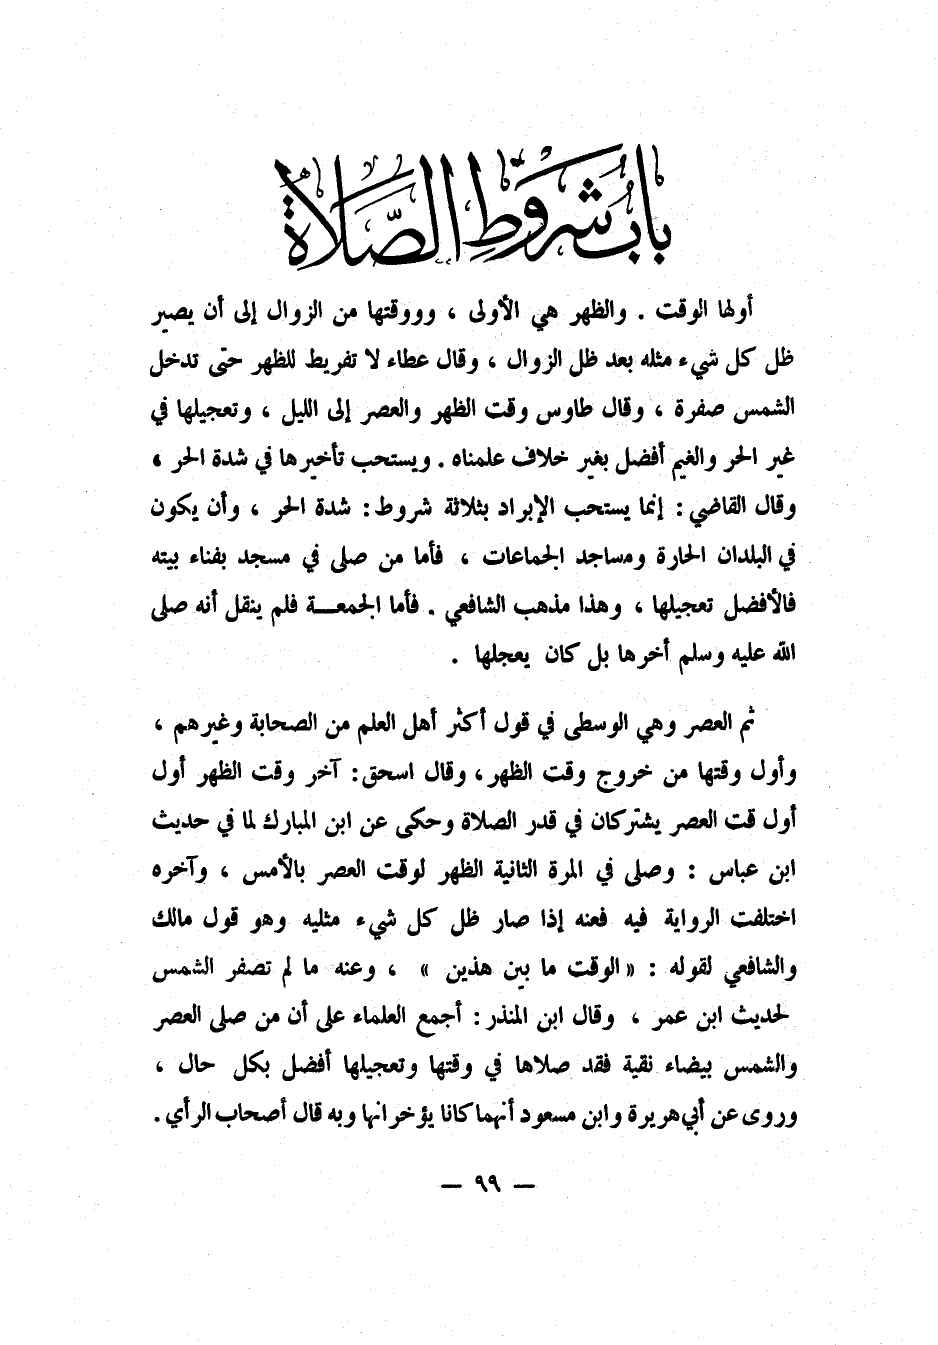 باب شروط الصلاة
أولها الوقت . والظهر هي الأولى ، وووقتها من الزوال إلى أن يصير
ظل كل شيء مثله بعد ظل الزوال ، وقال عطاء لا تفريط للظهر حتى تدخل
الشمس صفرة ، وقال طاوس وقت الظهر والعصر إلى الليل ، وتعجيلها في
غير الحر والغيم أفضل بغير خلاف علمناه . ويستحب تأخيرها في شدة الحر ،
وقال القاضي : إنما يستحب الإبراد بثلاثة شروط : شدة الحر ، وأن يكون
في البلدان الحارة ومساجد الجماعات ، فأما من صلى في مسجد بفناء بيته
فالأفضل تعجيلها ، وهذا مذهب الشافعي . فأما الجمعــة فلم ينقل أنه صلى
الله عليه وسلم أخرها بل كان يعجلها .
ثم العصر وهي الوسطى في قول أكثر أهل العلم من الصحابة وغيرهم ،
وأول وقتها من خروج وقت الظهر ، وقال اسحق : آخر وقت الظهر أول
أول قت العصر يشتركان في قدر الصلاة وحكى عن ابن المبارك لما في حديث
ابن عباس : وصلى في المرة الثانية الظهر لوقت العصر بالأمس ، وآخره
اختلفت الرواية فيه فعنه إذا صار ظل كل شيء مثليه وهو قول مالك
والشافعي لقوله : « الوقت ما بين هذين » ، وعنه ما لم تصفر الشمس
لحديث ابن عمر ، وقال ابن المنذر : أجمع العلماء على أن من صلى العصر
والشمس بيضاء نقية فقد صلاها في وقتها وتعجيلها أفضل بكل حال ،
وروى عن أبي هريرة وابن مسعود أنهما كانا يؤخرانها وبه قال أصحاب الرأي .
— ٩٩ —